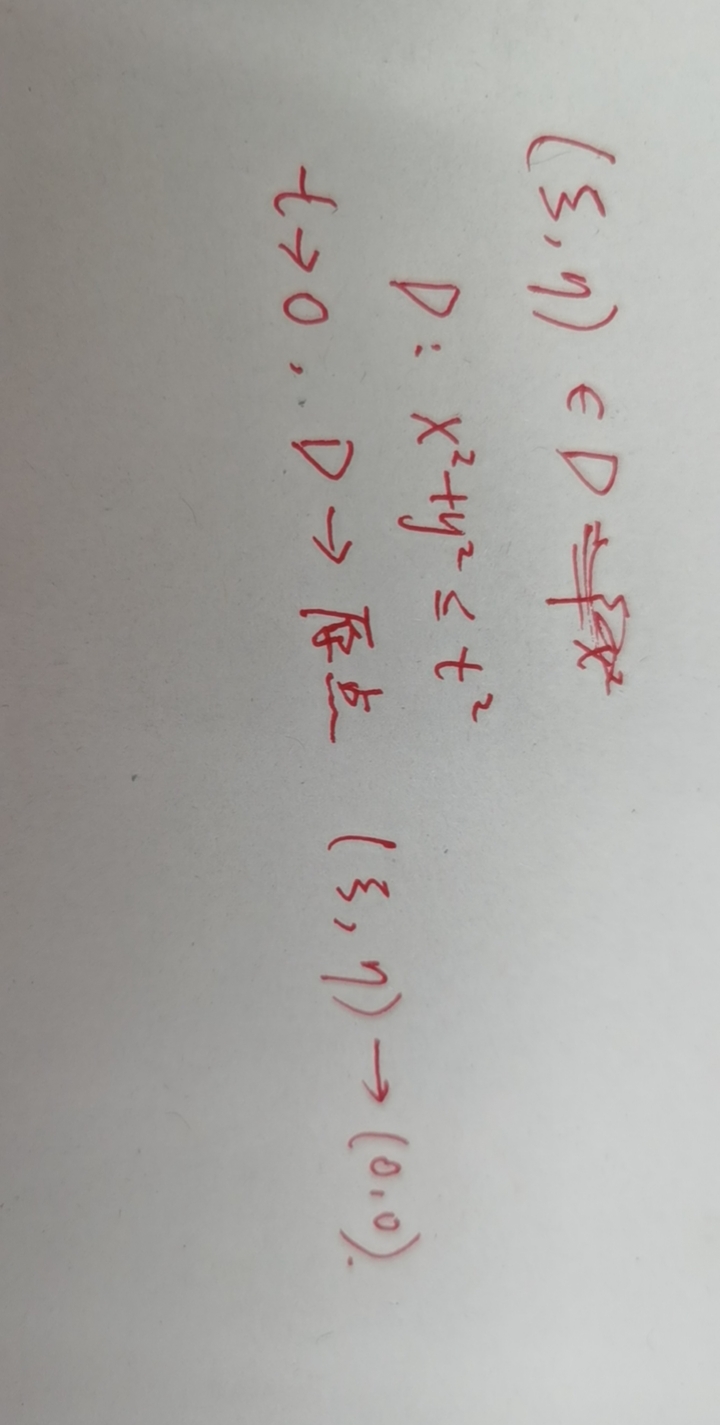 (ξ, η) ∈ D
D: x²+y² ≤ t²
t→0, D → 原点 (ξ, η) → (0,0).